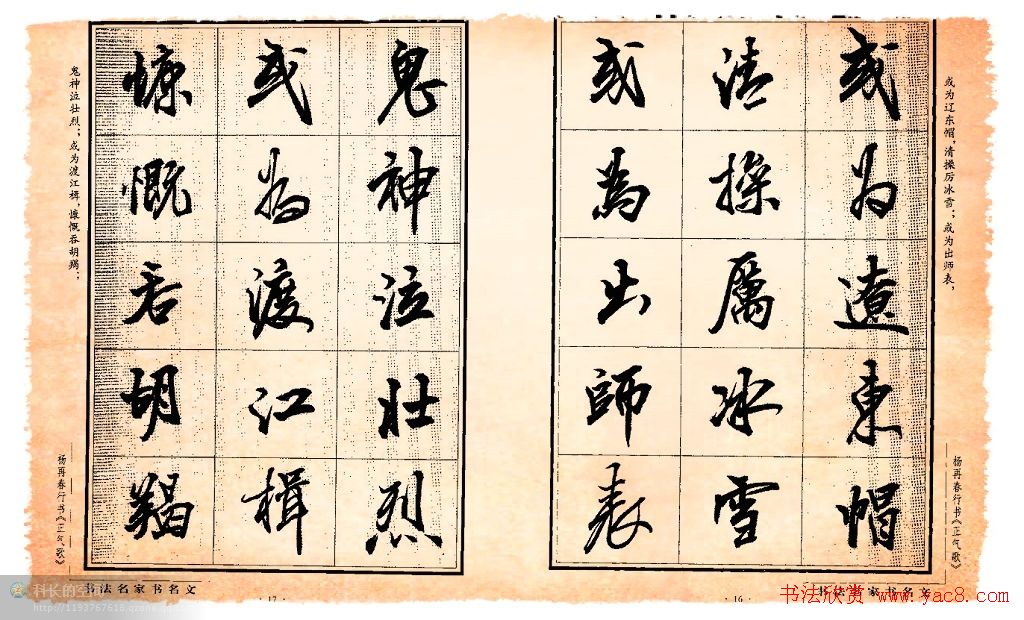 或为辽东帽，清操厉冰雪；或为出师表，
或为遼東帽
清操厲冰雪
或為出師表
杨再春行书《正气歌》
· 16 ·
鬼神泣壮烈
或為渡江楫
慷慨吞胡羯
鬼神泣壮烈；或为渡江楫，慷慨吞胡羯；
杨再春行书《正气歌》
书法名家书名文
· 17 ·
科长的空
http://1193767618.qzone.qq.com
书法欣赏 www.yac8.com